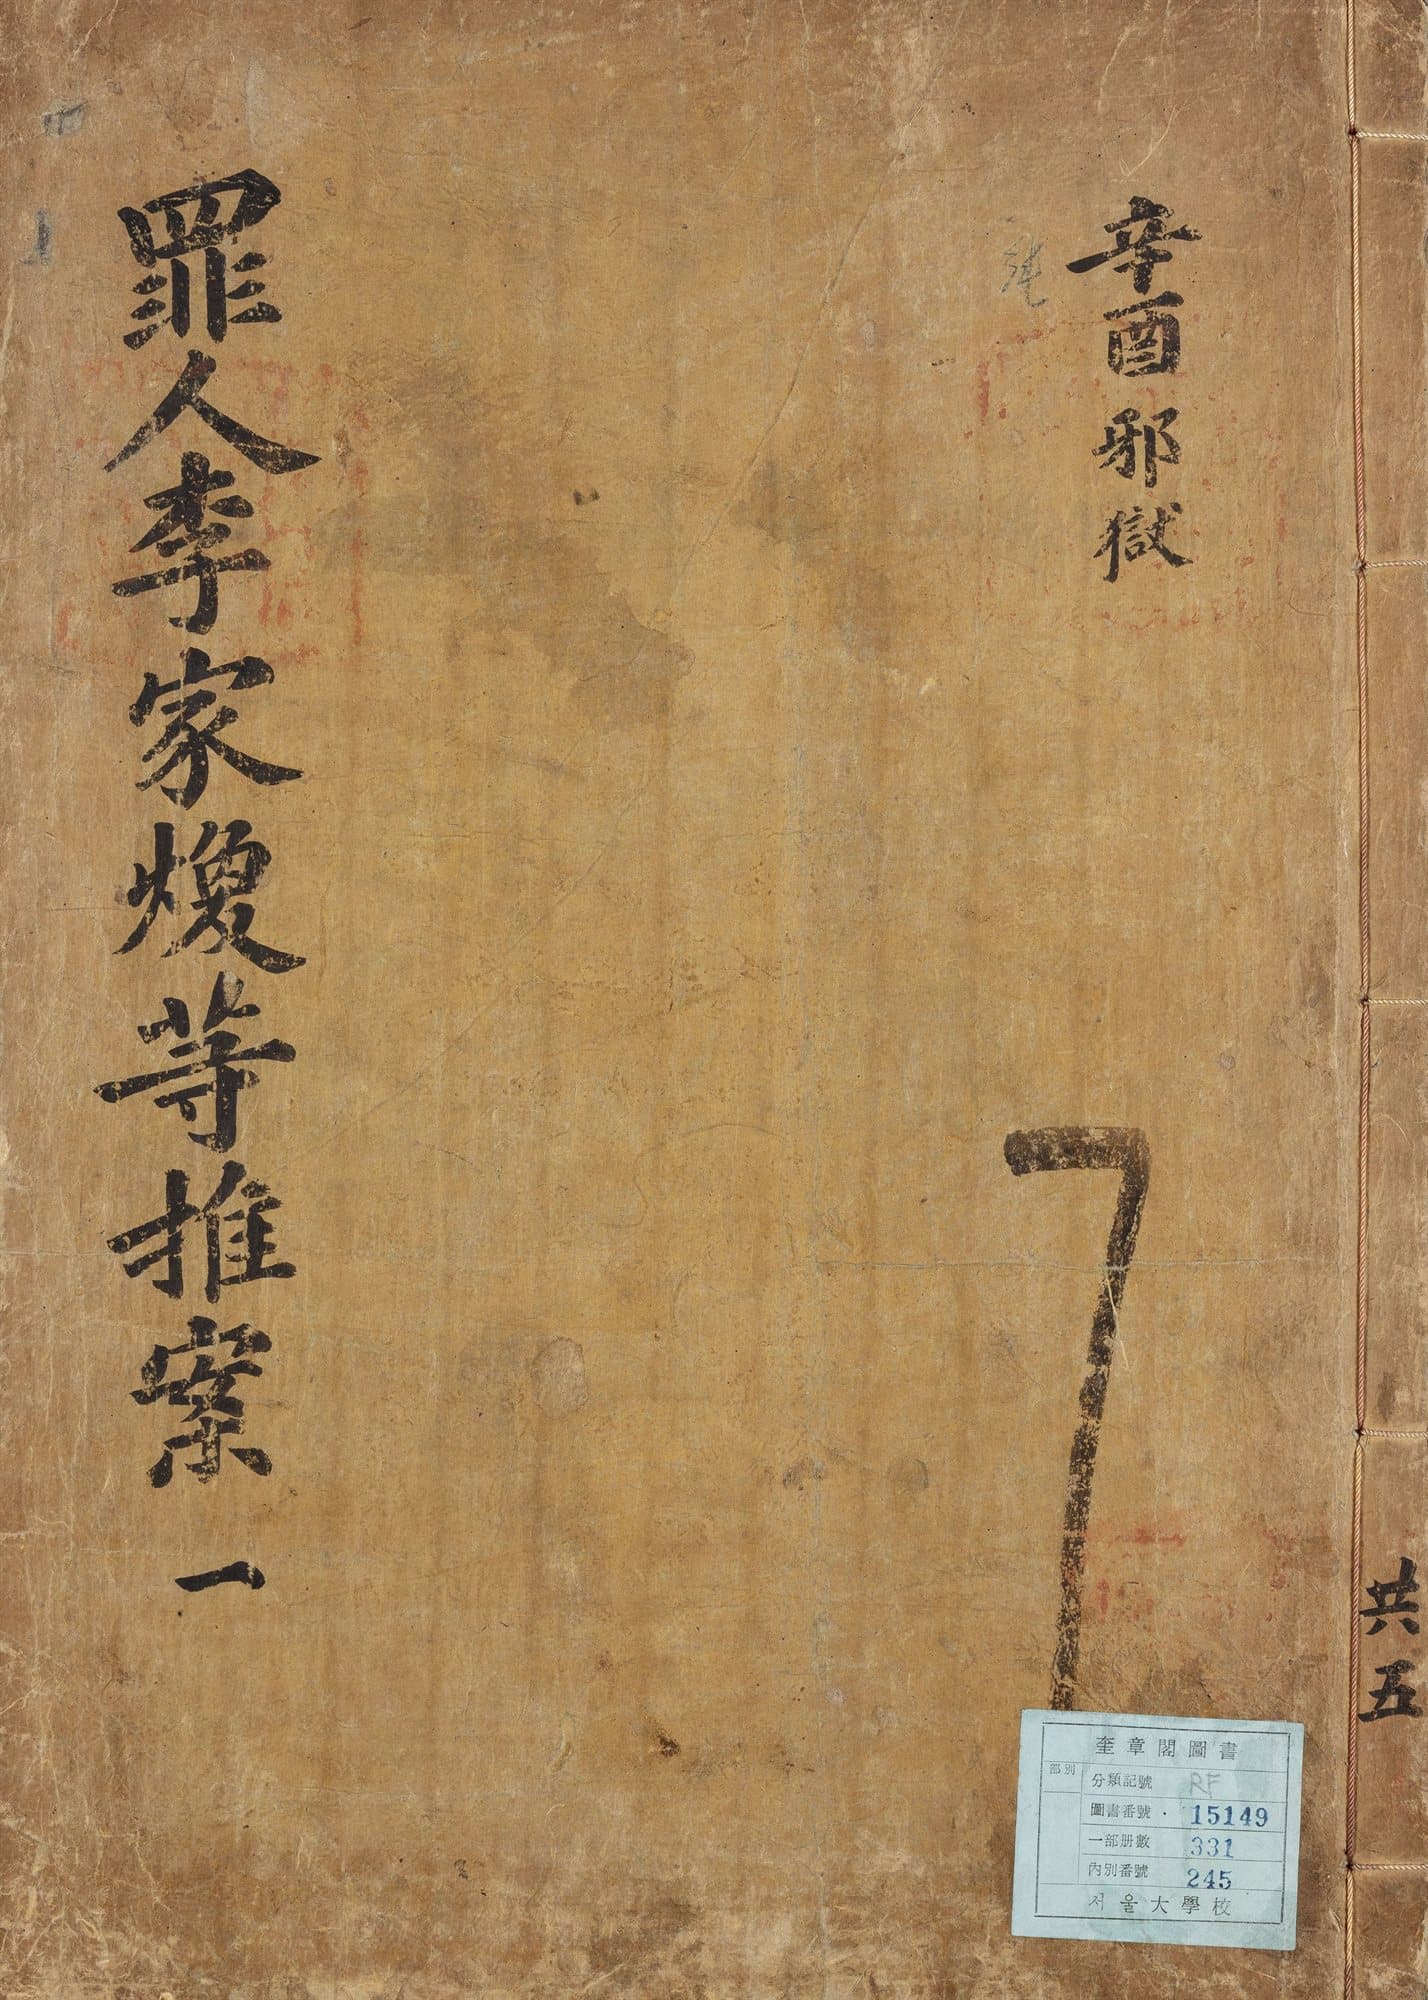 辛酉邪獄
罪人李家煥等推案 一
共五
奎章閣圖書
部別
分類記號 RF
圖書番號 · 15149
一部册數 331
內別番號 245
서울大學校